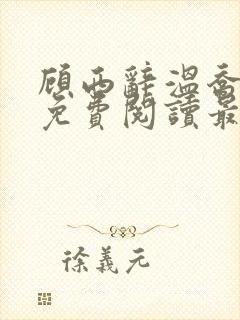 顾西辭溫喬
免費閱讀最
徐義元